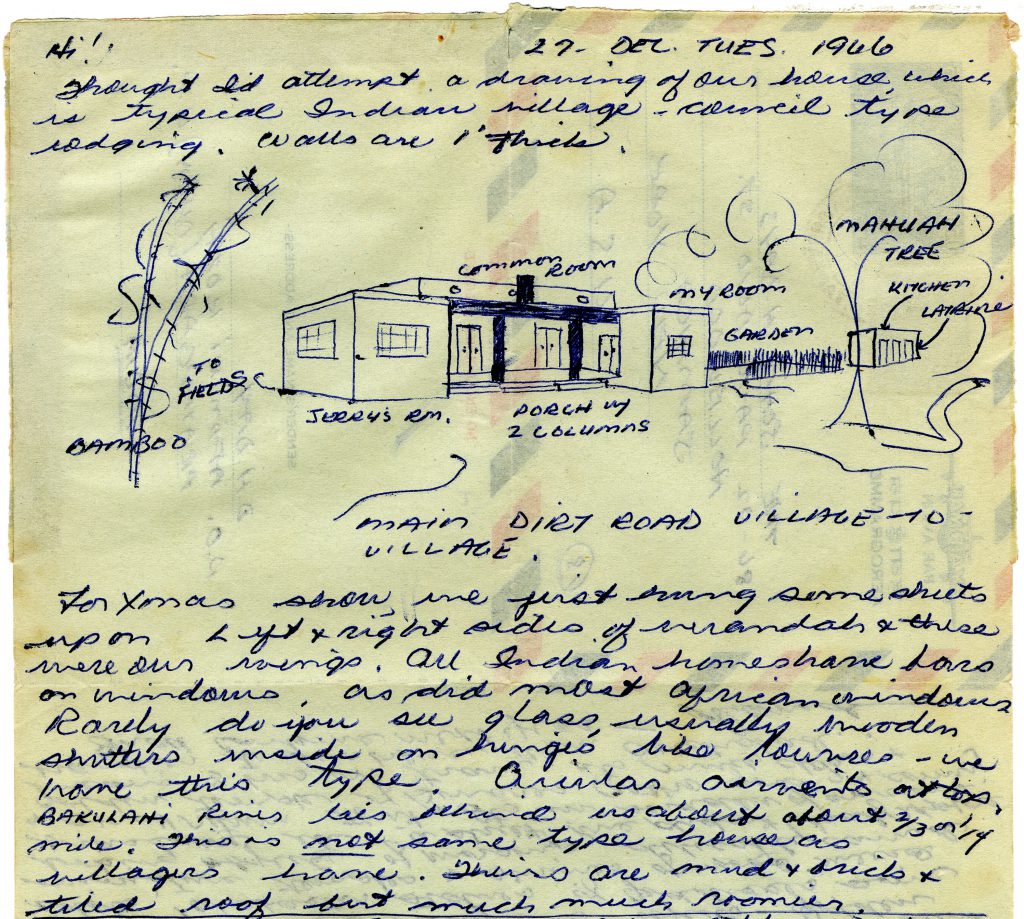 Hi! 27- DEC. TUES. 1966
Thought I'd attempt a drawing of our house, which
is typical Indian village - council type
lodging. Walls are 1' thick.
MAHUAH
TREE
COMMON
ROOM
MY ROOM
KITCHEN
LATRINE
GARDEN
TO
FIELDS
JERRY'S RM.
PORCH W/
2 COLUMNS
BAMBOO
MAIN DIRT ROAD VILLAGE-TO-
VILLAGE.
For Xmas show, we just hung some sheets
up on left & right sides of verandah & these
were our wings. All Indian homes have bars
on windows, as did most African windows
Rarely do you see glass, usually wooden
shutters inside on hinges, like louvres - we
have this type. air vents at tops.
BAKULAHI River lies behind us about about 2/3 or 1/4
mile. This is not same type house as
villagers have. Theirs are mud & brick &
tiled roof but much much roomier.